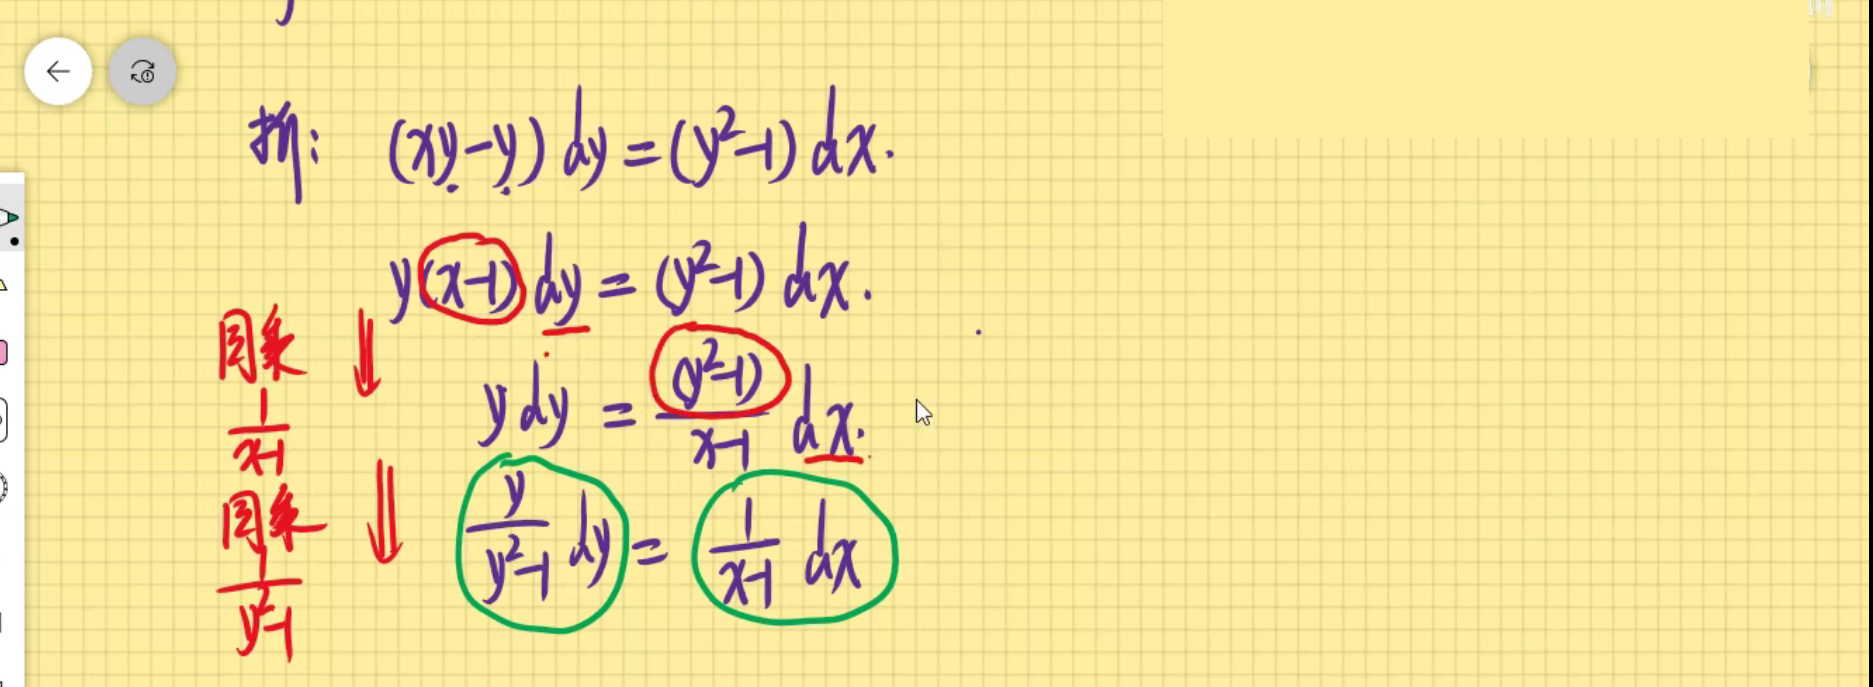 折: (xy-y) dy = (y²-1) dx.
y(x-1) dy = (y²-1) dx.
同乘 1/(x-1)
y dy = (y²-1)/(x-1) dx.
同乘 1/(y²-1)
y/(y²-1) dy = 1/(x-1) dx